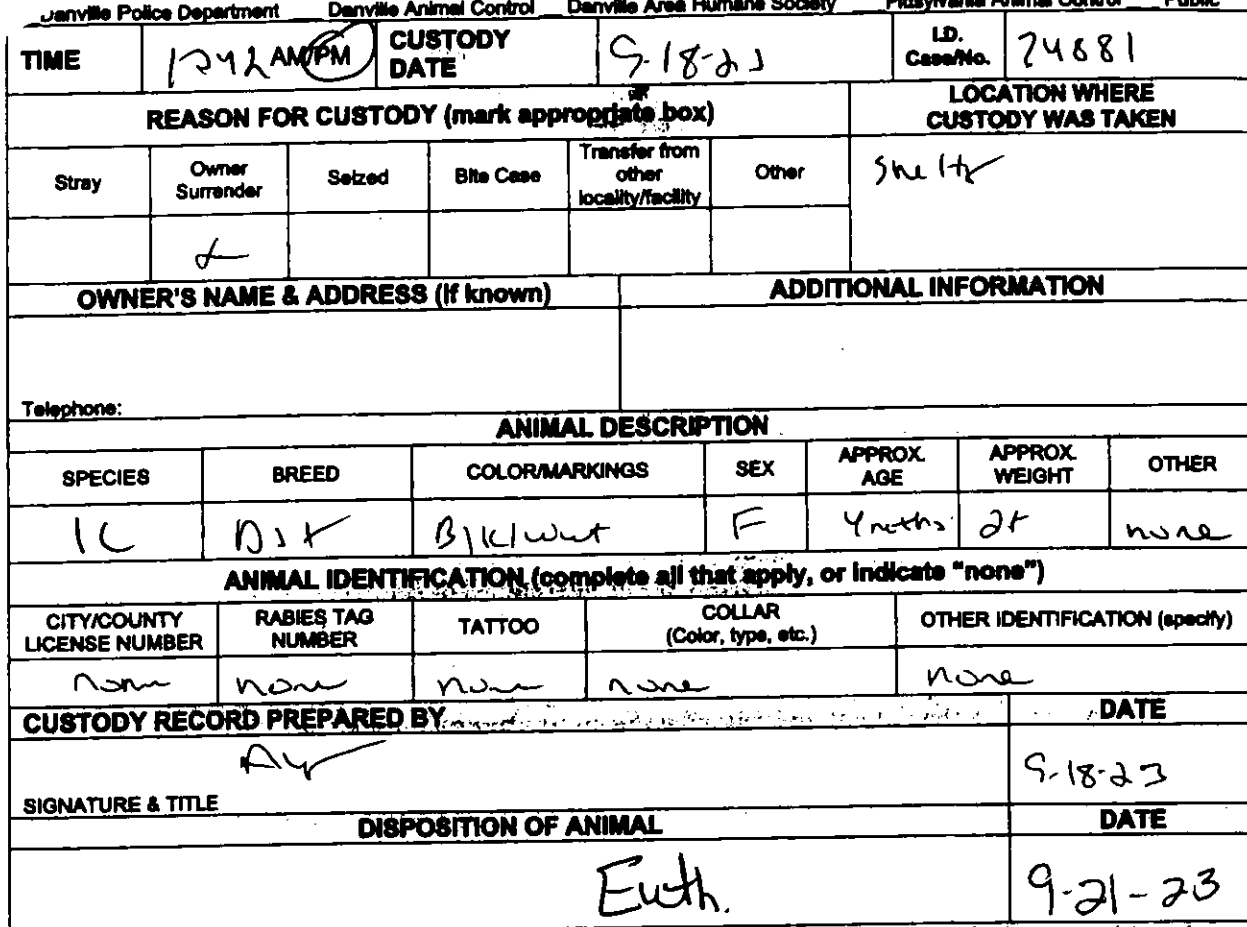 Danville Police Department Danville Animal Control Danville Area Humane Society Pittsylvania Animal Control Public
TIME 1242 AM/PM CUSTODY DATE 9-18-23 I.D. Case/No.
REASON FOR CUSTODY (mark appropriate box) LOCATION WHERE CUSTODY WAS TAKEN
Stray Owner Surrender Seized Bite Case Transfer from other locality/facility Other Shelter
OWNER'S NAME & ADDRESS (If known) ADDITIONAL INFORMATION
Telephone:
ANIMAL DESCRIPTION
SPECIES BREED COLOR/MARKINGS SEX APPROX. AGE APPROX. WEIGHT OTHER
F none
ANIMAL IDENTIFICATION (complete all that apply, or indicate "none")
CITY/COUNTY LICENSE NUMBER RABIES TAG NUMBER TATTOO COLLAR (Color, type, etc.) OTHER IDENTIFICATION (specify)
none none none none none
CUSTODY RECORD PREPARED BY DATE
9-18-23
SIGNATURE & TITLE
DISPOSITION OF ANIMAL DATE
Euth. 9-21-23